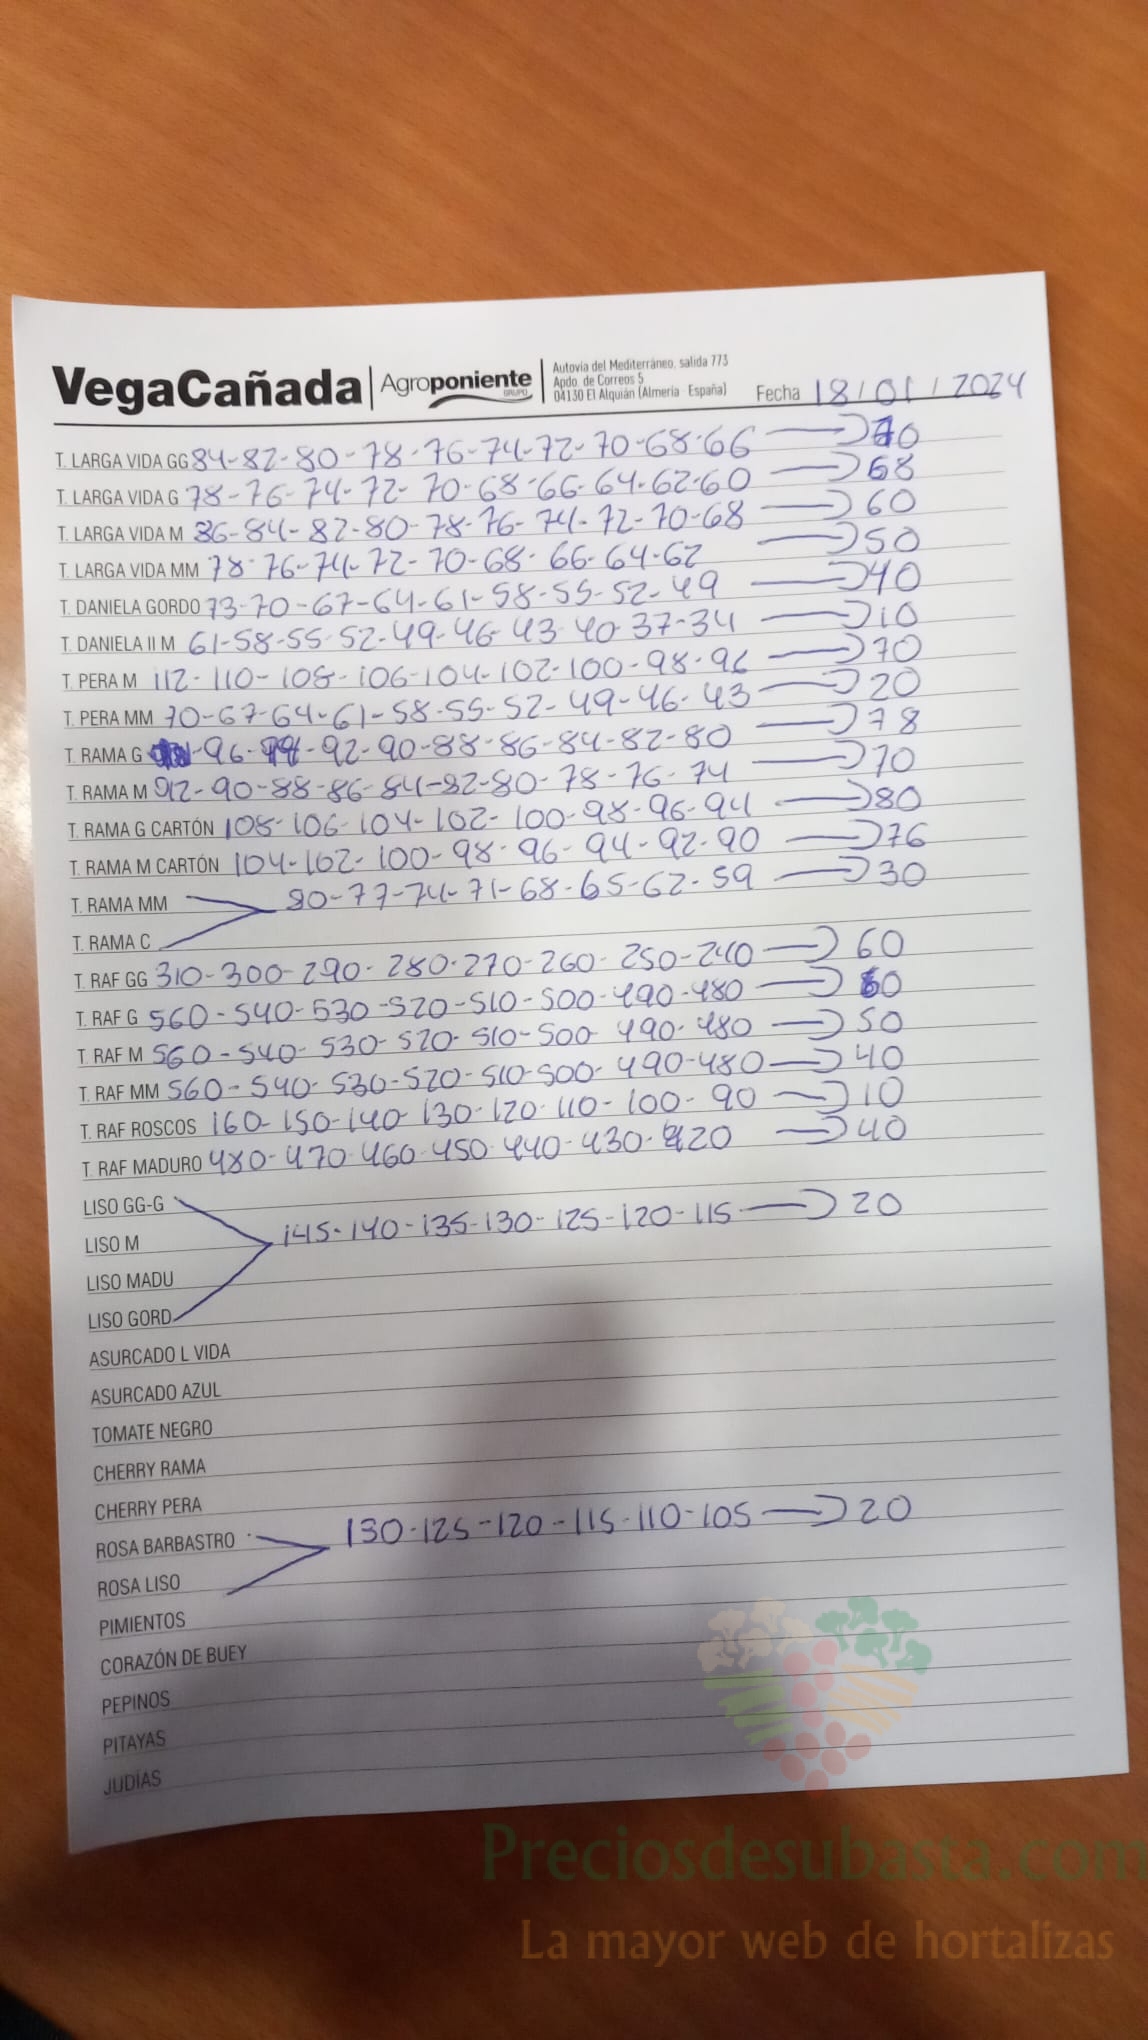 VegaCañada
Agroponiente
GRUPO
Autovía del Mediterráneo, salida 773
Apdo. de Correos 5
04130 El Alquián (Almería España)
Fecha 18/01/2024
T. LARGA VIDA GG 84-82-80-78-76-74-72-70-68-66 70
T. LARGA VIDA G 78-76-74-72-70-68-66-64-62-60 68
T. LARGA VIDA M 86-84-82-80-78-76-74-72-70-68 60
T. LARGA VIDA MM 78-76-74-72-70-68-66-64-62 50
T. DANIELA GORDO 73-70-67-64-61-58-55-52-49 40
T. DANIELA II M 61-58-55-52-49-46-43-40-37-34 10
T. PERA M 112-110-108-106-104-102-100-98-96 70
T. PERA MM 70-67-64-61-58-55-52-49-46-43 20
T. RAMA G -96-94-92-90-88-86-84-82-80 78
T. RAMA M 92-90-88-86-84-82-80-78-76-74 70
T. RAMA G CARTÓN 108-106-104-102-100-98-96-94 80
T. RAMA M CARTÓN 104-102-100-98-96-94-92-90 76
T. RAMA MM 80-77-74-71-68-65-62-59 30
T. RAMA C
T. RAF GG 310-300-290-280-270-260-250-240 60
T. RAF G 560-540-530-520-510-500-490-480 60
T. RAF M 560-540-530-520-510-500-490-480 50
T. RAF MM 560-540-530-520-510-500-490-480 40
T. RAF ROSCOS 160-150-140-130-120-110-100-90 10
T. RAF MADURO 480-470-460-450-440-430-420 40
LISO GG-G
LISO M 145-140-135-130-125-120-115 20
LISO MADU
LISO GORD
ASURCADO L VIDA
ASURCADO AZUL
TOMATE NEGRO
CHERRY RAMA
CHERRY PERA
ROSA BARBASTRO 130-125-120-115-110-105 20
ROSA LISO
PIMIENTOS
CORAZÓN DE BUEY
PEPINOS
PITAYAS
JUDÍAS
Preciosdesubasta.com
La mayor web de hortalizas